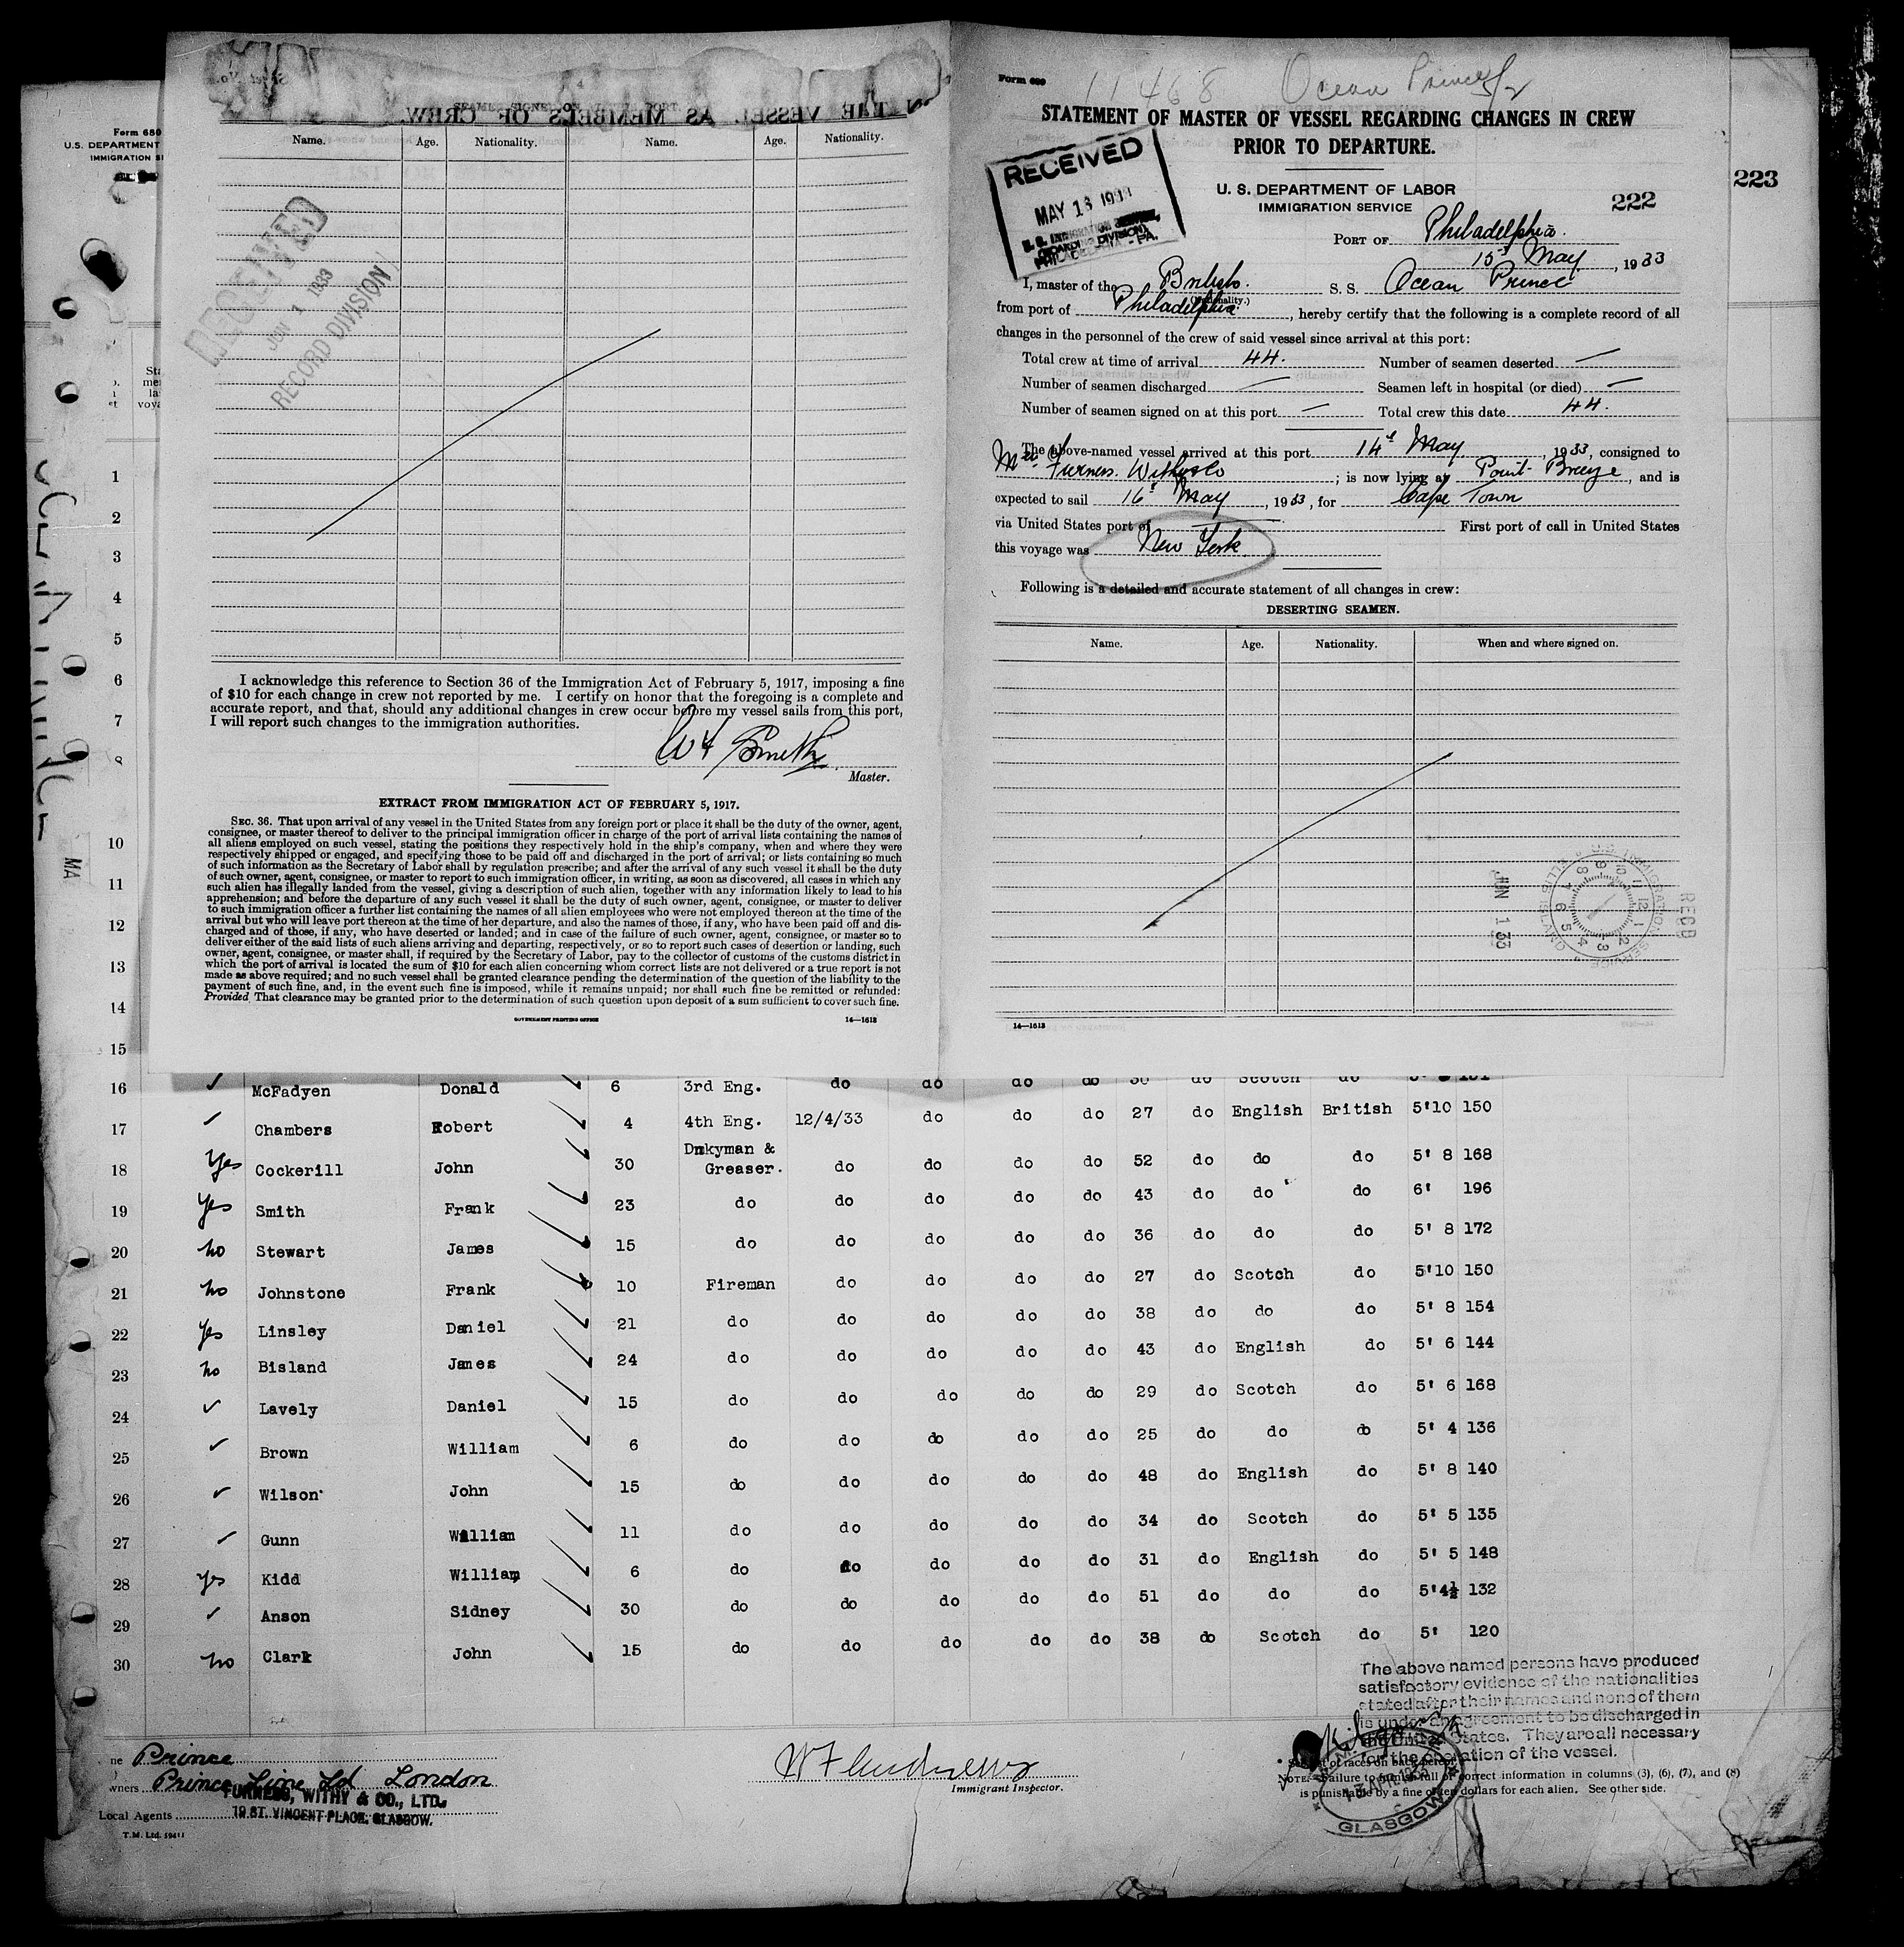 223
Form 680
U. S. DEPARTMENT
IMMIGRATION
11468 Ocean Prince
Form 689
STATEMENT OF MASTER OF VESSEL REGARDING CHANGES IN CREW
PRIOR TO DEPARTURE.
U. S. DEPARTMENT OF LABOR
IMMIGRATION SERVICE
222
RECEIVED
MAY 16
PHILADELPHIA, - PA.
PORT OF Philadelphia.
15th May, 1933
I, master of the British. S. S. Ocean Prince
(Nationality.)
from port of Philadelphia, hereby certify that the following is a complete record of all
changes in the personnel of the crew of said vessel since arrival at this port:
Total crew at time of arrival 44. Number of seamen deserted —
Number of seamen discharged — Seamen left in hospital (or died) —
Number of seamen signed on at this port — Total crew this date 44.
The above-named vessel arrived at this port 14th May 1933, consigned to
Furness Withy & Co; is now lying at Point Breeze, and is
expected to sail 16th May, 1933, for Cape Town
via United States port of — First port of call in United States
this voyage was New York.
Following is a detailed and accurate statement of all changes in crew:
DESERTING SEAMEN.
Name. Age. Nationality. When and where signed on.
RECD
JUN 1 33
U. S. IMMIGRATION SERVICE
ELLIS ISLAND
14—1613
SEAMEN SIGNED ON AT THIS PORT.
THE VESSEL AS MEMBERS OF CREW.
Name. Age. Nationality. Name. Age. Nationality.
RECEIVED
JUN 1 1933
RECORD DIVISION
I acknowledge this reference to Section 36 of the Immigration Act of February 5, 1917, imposing a fine
of $10 for each change in crew not reported by me. I certify on honor that the foregoing is a complete and
accurate report, and that, should any additional changes in crew occur before my vessel sails from this port,
I will report such changes to the immigration authorities.
Smith
Master.
EXTRACT FROM IMMIGRATION ACT OF FEBRUARY 5, 1917.
SEC. 36. That upon arrival of any vessel in the United States from any foreign port or place it shall be the duty of the owner, agent,
consignee, or master thereof to deliver to the principal immigration officer in charge of the port of arrival lists containing the names of
all aliens employed on such vessel, stating the positions they respectively hold in the ship's company, when and where they were
respectively shipped or engaged, and specifying those to be paid off and discharged in the port of arrival; or lists containing so much
of such information as the Secretary of Labor shall by regulation prescribe; and after the arrival of any such vessel it shall be the duty
of such owner, agent, consignee, or master to report to such immigration officer, in writing, as soon as discovered, all cases in which any
such alien has illegally landed from the vessel, giving a description of such alien, together with any information likely to lead to his
apprehension; and before the departure of any such vessel it shall be the duty of such owner, agent, consignee, or master to deliver
to such immigration officer a further list containing the names of all alien employees who were not employed thereon at the time of the
arrival but who will leave port thereon at the time of her departure, and also the names of those, if any, who have been paid off and dis-
charged and of those, if any, who have deserted or landed; and in case of the failure of such owner, agent, consignee, or master so to
deliver either of the said lists of such aliens arriving and departing, respectively, or so to report such cases of desertion or landing, such
owner, agent, consignee, or master shall, if required by the Secretary of Labor, pay to the collector of customs of the customs district in
which the port of arrival is located the sum of $10 for each alien concerning whom correct lists are not delivered or a true report is not
made as above required; and no such vessel shall be granted clearance pending the determination of the question of the liability to the
payment of such fine, and, in the event such fine is imposed, while it remains unpaid; nor shall such fine be remitted or refunded:
Provided That clearance may be granted prior to the determination of such question upon deposit of a sum sufficient to cover such fine.
GOVERNMENT PRINTING OFFICE 14—1613
1
2
3
4
5
6
7
8
10
11
12
13
14
15
16 McFadyen Donald 6 3rd Eng. do do do do 30 do Scotch do
17 Chambers Robert 4 4th Eng. 12/4/33 do do do 27 do English British 5'10 150
18 Yes Cockerill John 30 Dnkyman & Greaser. do do do do 52 do do do 5' 8 168
19 Yes Smith Frank 23 do do do do do 43 do do do 6' 196
20 no Stewart James 15 do do do do do 36 do do do 5' 8 172
21 no Johnstone Frank 10 Fireman do do do do 27 do Scotch do 5'10 150
22 Yes Linsley Daniel 21 do do do do do 38 do do do 5' 8 154
23 no Bisland James 24 do do do do do 43 do English do 5' 6 144
24 Lavely Daniel 15 do do do do do 29 do Scotch do 5' 6 168
25 Brown William 6 do do do do do 25 do do do 5' 4 136
26 Wilson John 15 do do do do do 48 do English do 5' 8 140
27 Gunn William 11 do do do do do 34 do Scotch do 5' 5 135
28 yes Kidd William 6 do do do do do 31 do English do 5' 5 148
29 Anson Sidney 30 do do do do do 51 do do do 5'4½ 132
30 no Clark John 15 do do do do do 38 do Scotch do 5' 120
The above named persons have produced
satisfactory evidence of the nationalities
stated after their names and none of them
is under an agreement to be discharged in
the United States. They are all necessary
for the operation of the vessel.
Prince
owners Prince Line Ld London
Local Agents FURNESS, WITHY & CO., LTD.
19 ST. VINCENT PLACE, GLASGOW.
T.M. Ltd. 59411
Immigrant Inspector.
13 APR 1933
GLASGOW
NOTE.—Failure to furnish full or correct information in columns (3), (6), (7), and (8)
is punishable by a fine of ten dollars for each alien. See other side.